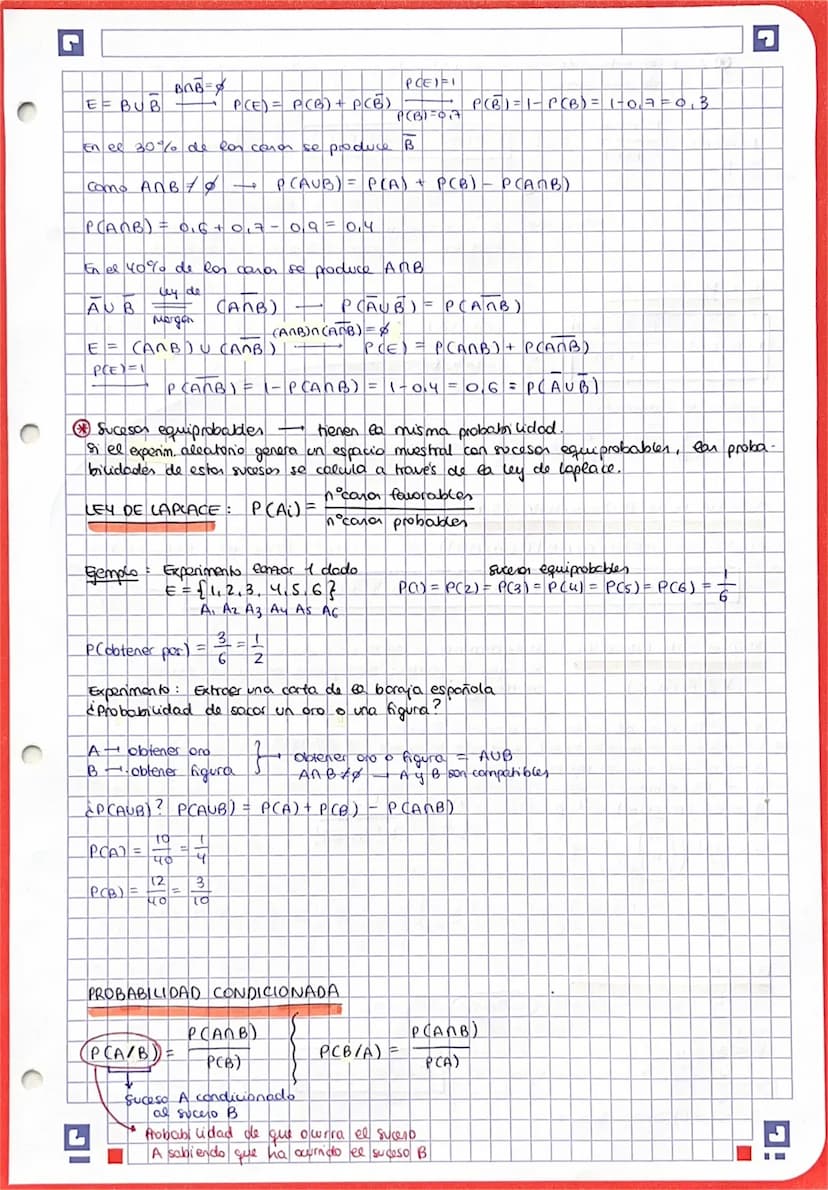 E = B∪B̅ →(B∩B̅=∅) P(E) = P(B) + P(B̅) →(P(E)=1, P(B)=0,7) P(B̅) = 1 - P(B) = 1-0,7 = 0,3
En el 30% de los casos se produce B̅
Como A∩B ≠ ∅ → P(A∪B) = P(A) + P(B) - P(A∩B)
P(A∩B) = 0,6 + 0,7 - 0,9 = 0,4
En el 40% de los casos se produce A∩B
A̅ ∪ B̅ =(Ley de Morgan) (A∩B)̅ → P(A̅∪B̅) = P(A∩B)̅
E = (A∩B) ∪ (A∩B)̅ →((A∩B)∩(A∩B)̅=∅) P(E) = P(A∩B) + P(A∩B)̅
→(P(E)=1) P(A∩B)̅ = 1 - P(A∩B) = 1-0,4 = 0,6 = P(A̅∪B̅)
* Sucesos equiprobables → tienen la misma probabilidad.
Si el experim. aleatorio genera un espacio muestral con sucesos equiprobables, las proba-
bilidades de estos sucesos se calcula a través de la ley de Laplace.
LEY DE LAPLACE: P(Ai) = nº casos favorables / nº casos probables
Ejemplo: Experimento lanzar 1 dado sucesos equiprobables
E = {1, 2, 3, 4, 5, 6} P(1) = P(2) = P(3) = P(4) = P(5) = P(6) = 1/6
A₁ A₂ A₃ A₄ A₅ A₆
P(obtener par) = 3/6 = 1/2
Experimento: Extraer una carta de la baraja española
¿Probabilidad de sacar un oro o una figura?
A → obtener oro } → obtener oro o figura = A∪B
B → obtener figura A∩B ≠ ∅ → A y B son compatibles
¿P(A∪B)? P(A∪B) = P(A) + P(B) - P(A∩B)
P(A) = 10/40 = 1/4
P(B) = 12/40 = 3/10
PROBABILIDAD CONDICIONADA
P(A/B) = P(A∩B) / P(B) } P(B/A) = P(A∩B) / P(A)
Suceso A condicionado
al suceso B
Probabilidad de que ocurra el suceso
A sabiendo que ha ocurrido el suceso B